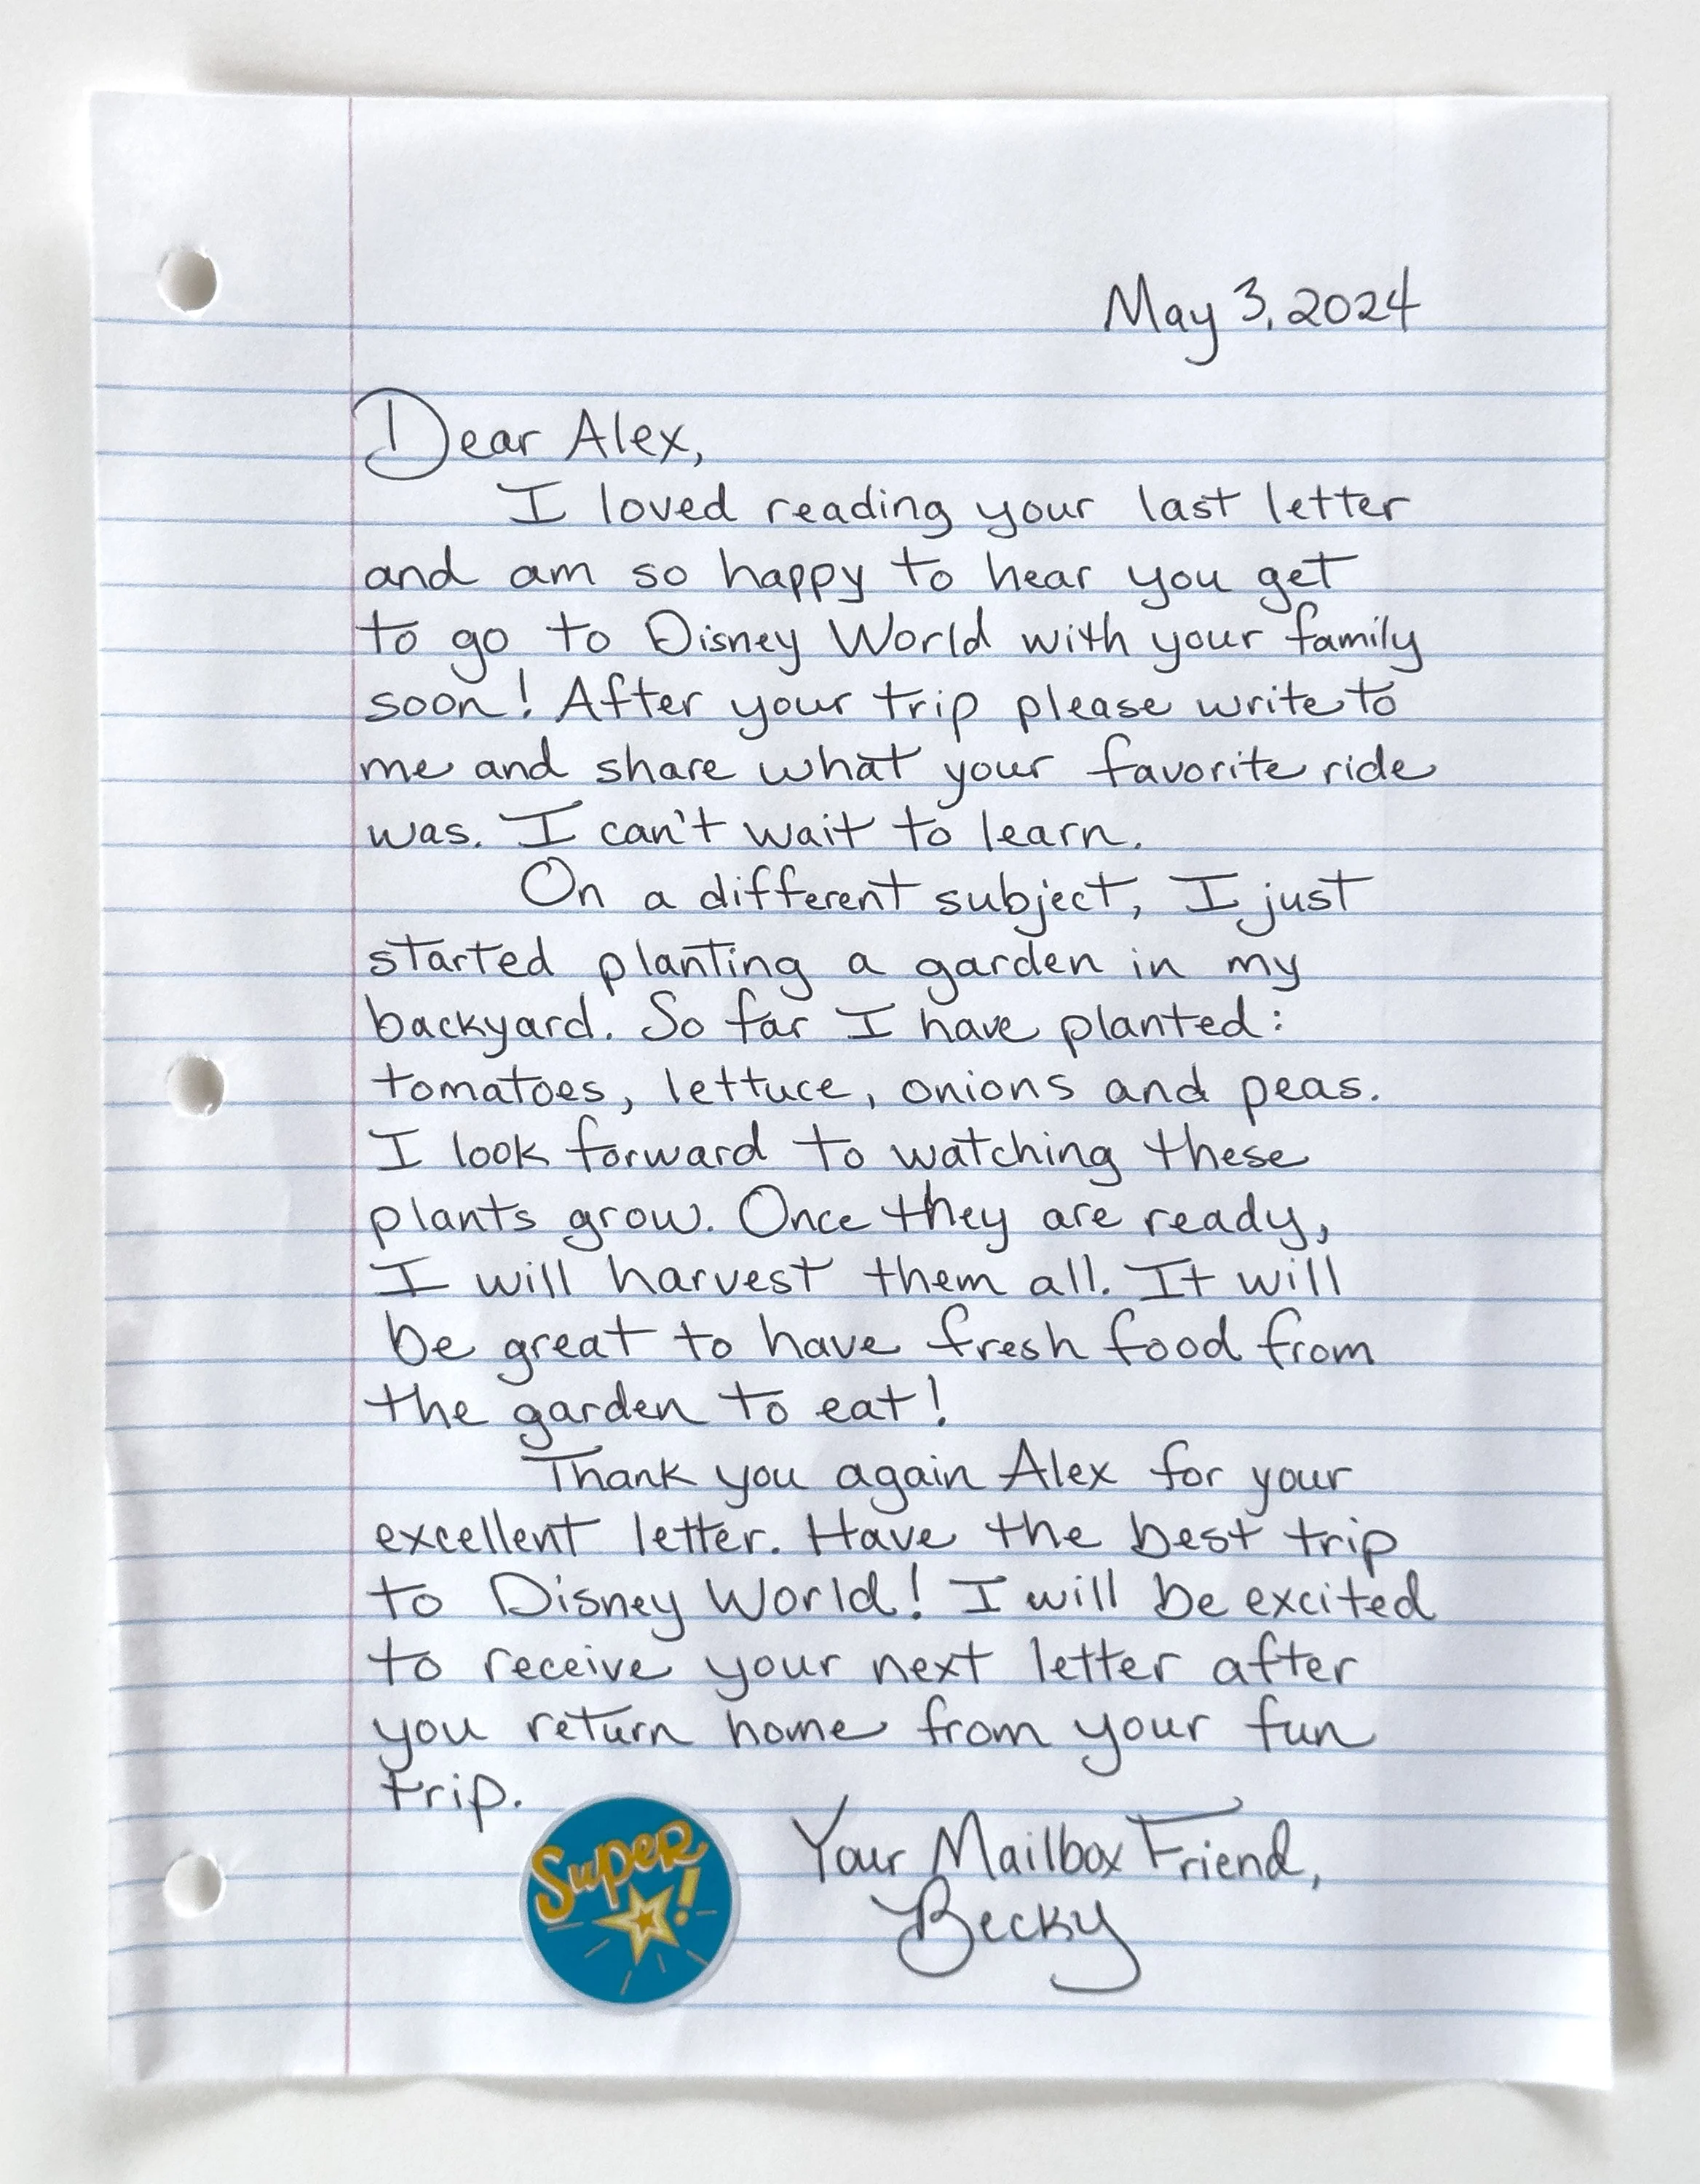 May 3, 2024
Dear Alex,
I loved reading your last letter
and am so happy to hear you get
to go to Disney World with your family
soon! After your trip please write to
me and share what your favorite ride
was. I can't wait to learn.
On a different subject, I just
started planting a garden in my
backyard. So far I have planted:
tomatoes, lettuce, onions and peas.
I look forward to watching these
plants grow. Once they are ready,
I will harvest them all. It will
be great to have fresh food from
the garden to eat!
Thank you again Alex for your
excellent letter. Have the best trip
to Disney World! I will be excited
to receive your next letter after
you return home from your fun
trip.
Super!
Your Mailbox Friend,
Becky